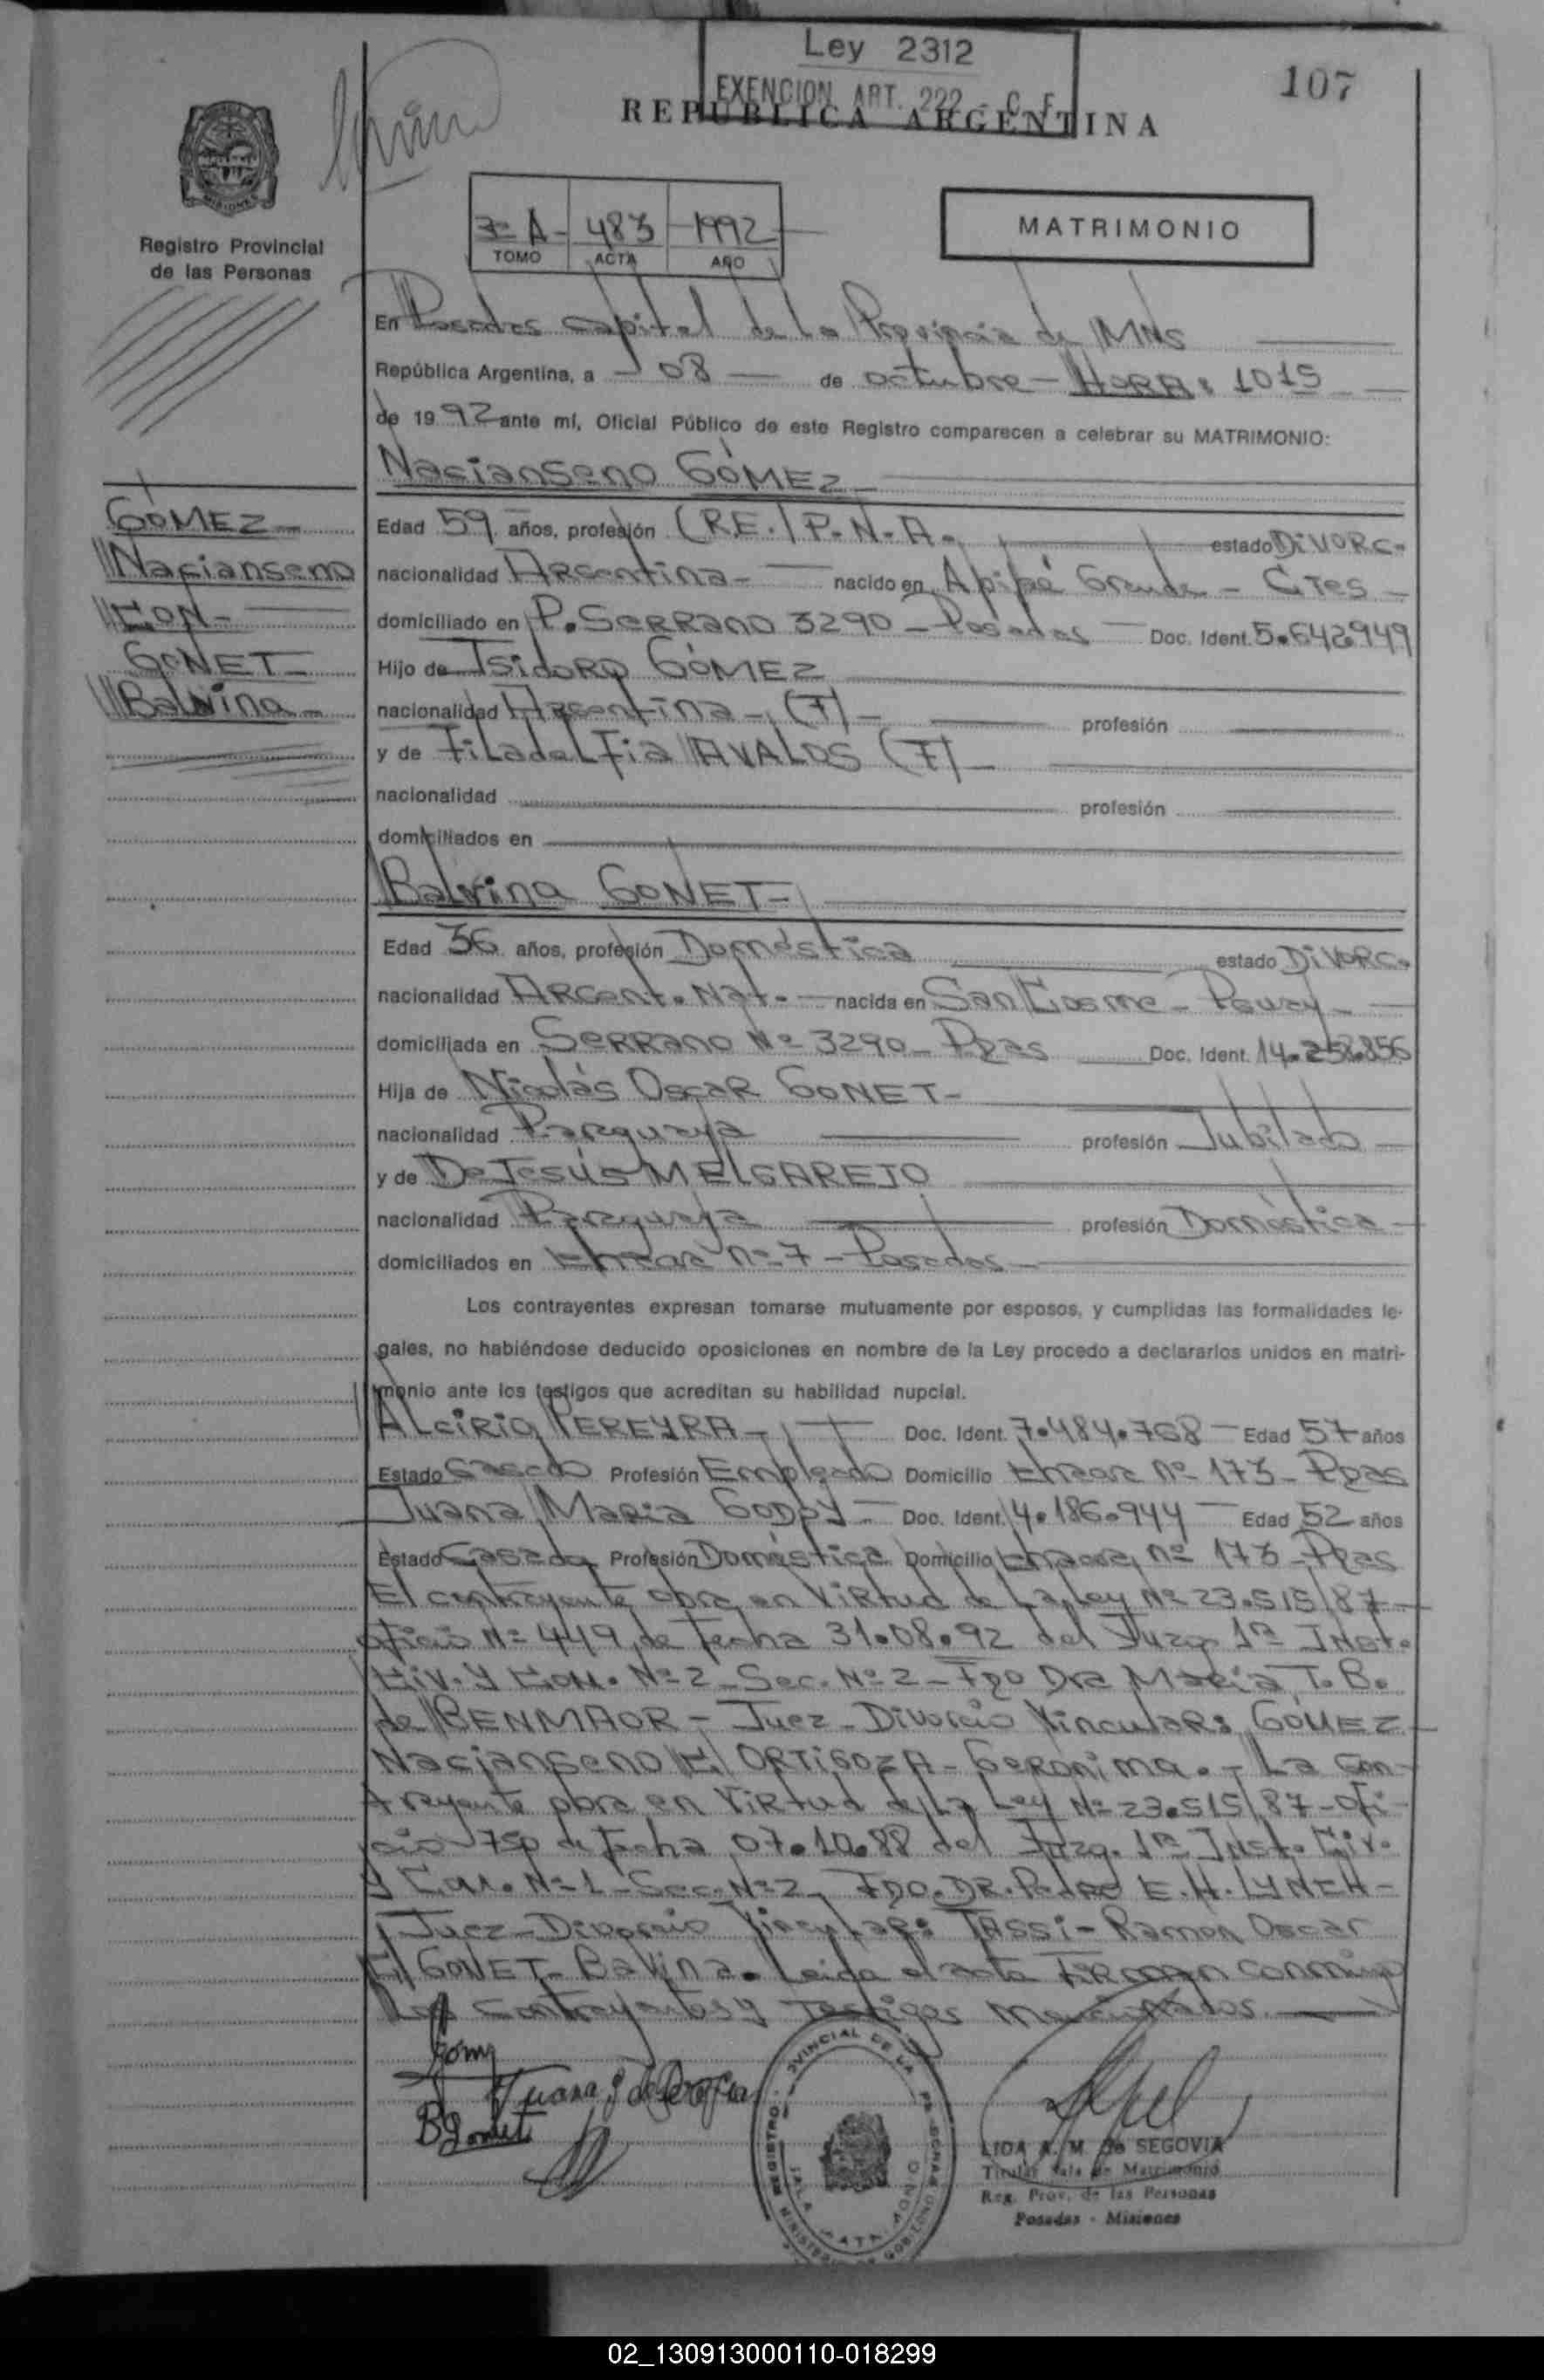 Ley 2312
EXENCION ART. 222 - C. F.
107
REPUBLICA ARGENTINA
MISIONES
Registro Provincial
de las Personas
3º A - 483 - 1992
TOMO ACTA AÑO
MATRIMONIO
En Posadas Capital de la Provincia de Mns
República Argentina, a 08 de octubre - HORA: 1015
de 1992 ante mí, Oficial Público de este Registro comparecen a celebrar su MATRIMONIO:
Nacianseno GÓMEZ
GÓMEZ
Nacianseno
CON-
GONET-
Balvina-
Edad 59 años, profesión (RE.) P.N.A. estado DIVORC.
nacionalidad Argentina - nacido en Apipé Grande - CTES -
domiciliado en P. SERRANO 3290 - Posadas Doc. Ident. 5.642.949
Hijo de Isidoro GÓMEZ
nacionalidad Argentina - (F) - profesión
y de Filadelfia AVALOS (F) -
nacionalidad profesión
domiciliados en
Balvina GONET-
Edad 36 años, profesión Doméstica estado DIVORC.
nacionalidad ARGENT. Nat. nacida en San Cosme -
domiciliada en SERRANO Nº 3290 - Pdas Doc. Ident. 14.258.856
Hija de Nicolás Oscar GONET-
nacionalidad Paraguaya profesión Jubilado
y de De Jesús MELGAREJO
nacionalidad Paraguaya profesión Doméstica
domiciliados en nº 7 - Posadas
Los contrayentes expresan tomarse mutuamente por esposos, y cumplidas las formalidades le-
gales, no habiéndose deducido oposiciones en nombre de la Ley procedo a declararlos unidos en matri-
monio ante los testigos que acreditan su habilidad nupcial.
Alcirio PEREYRA - Doc. Ident. 7.484.768 Edad 57 años
Estado Casado Profesión Empleado Domicilio nº 173 - Pdas
Juana Maria GODOY - Doc. Ident. 4.186.944 Edad 52 años
Estado Casada Profesión Doméstica Domicilio nº 173 - Pdas
El contrayente obra en virtud de la Ley Nº 23.515/87
oficio Nº 449 de fecha 31.08.92 del Juzg. 1ra Inst.
Civ. y Com. Nº 2 - Sec. Nº 2 - Fdo Dra María T. B.
de BENMAOR - Juez - Divorcio Vincular: GOMEZ
Nacianseno C/ ORTIGOZA - Geronima. - La con-
trayente obra en virtud de la Ley Nº 23.515/87 - ofi-
cio 750 de fecha 07.10.88 del Juzg. 1ra Inst. Civ.
y Com. Nº 1 - Sec. Nº 2, FDO. DR. Pedro E. H. LYNCH -
Juez - Divorcio Vincular: TASSI - Ramon Oscar
C/ GONET - Balvina. Leida el acta firman conmigo
los contrayentes y testigos mencionados.
Gomz
Juana G de
B Gonet
LIDA A. M. de SEGOVIA
Titular Sala de Matrimonio
Reg. Prov. de las Personas
Posadas - Misiones
02_130913000110-018299